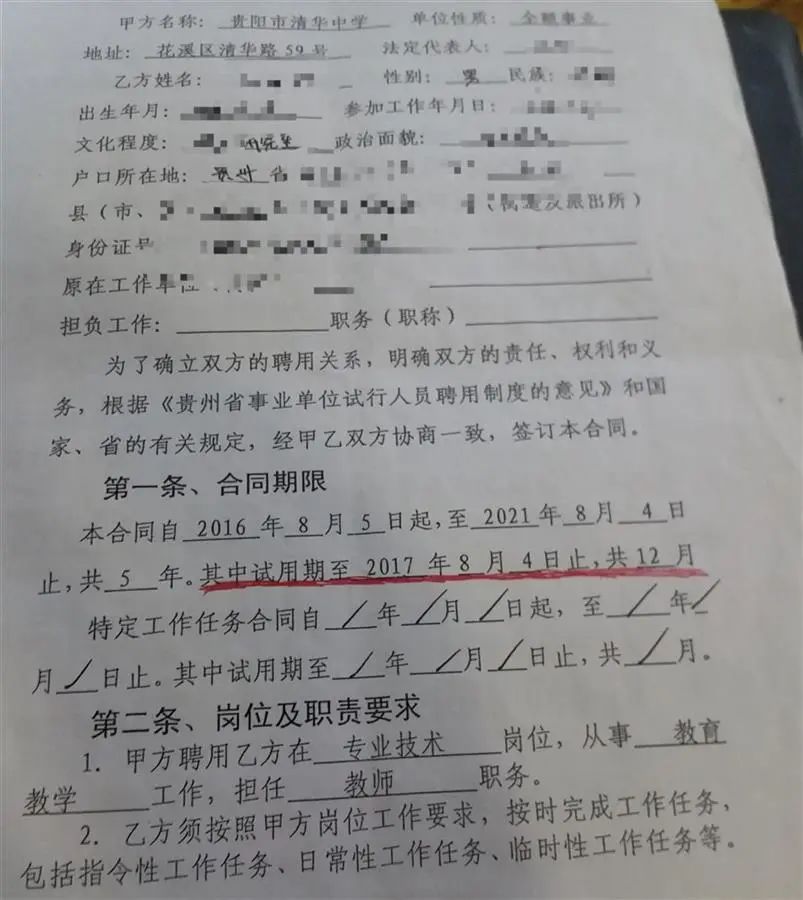 甲方名称：贵阳市清华中学 单位性质：全额事业
地址：花溪区清华路59号 法定代表人：
乙方姓名： 性别：男 民族：
出生年月： 参加工作年月日：
文化程度： 政治面貌：
户口所在地：贵州省
县（市、 派出所）
身份证号
原在工作单位
担负工作： 职务（职称）
为了确立双方的聘用关系，明确双方的责任、权利和义
务，根据《贵州省事业单位试行人员聘用制度的意见》和国
家、省的有关规定，经甲乙双方协商一致，签订本合同。
第一条、合同期限
本合同自 2016 年 8 月 5 日起，至 2021 年 8 月 4 日
止，共 5 年。其中试用期至 2017 年 8 月 4 日止，共 12 月
特定工作任务合同自 / 年 / 月 / 日起，至 / 年 /
月 / 日止。其中试用期至 / 年 / 月 / 日止，共 / 月。
第二条、岗位及职责要求
1. 甲方聘用乙方在 专业技术 岗位，从事 教育
教学 工作，担任 教师 职务。
2. 乙方须按照甲方岗位工作要求，按时完成工作任务，
包括指令性工作任务、日常性工作任务、临时性工作任务等。